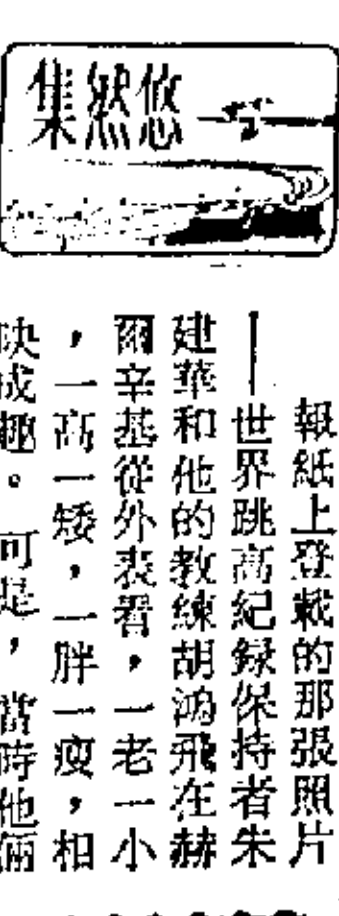 悠然集
報紙上登載的那張照片
——世界跳高紀録保持者朱
建華和他的教練胡鴻飛在赫
爾辛基從外表看，一老一小
，一高一矮，一胖一瘦，相
映成趣。可是，當時他倆